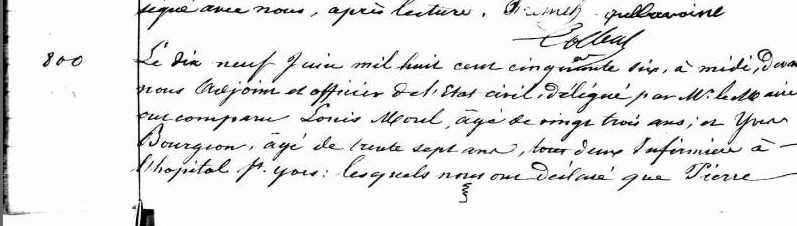 signé avec nous, après lecture.
800
Le dix neuf Juin mil huit cent cinquante six, à midi, devant
nous Adjoint et officier de l'Etat civil, délégué par Mr. le Maire
ont comparu Louis Morel, âgé de vingt trois ans; et Yves
Bourgeon, âgé de trente sept ans, tous deux Infirmiers à
l'hopital St. Yves: lesquels nous ont déclaré que Pierre